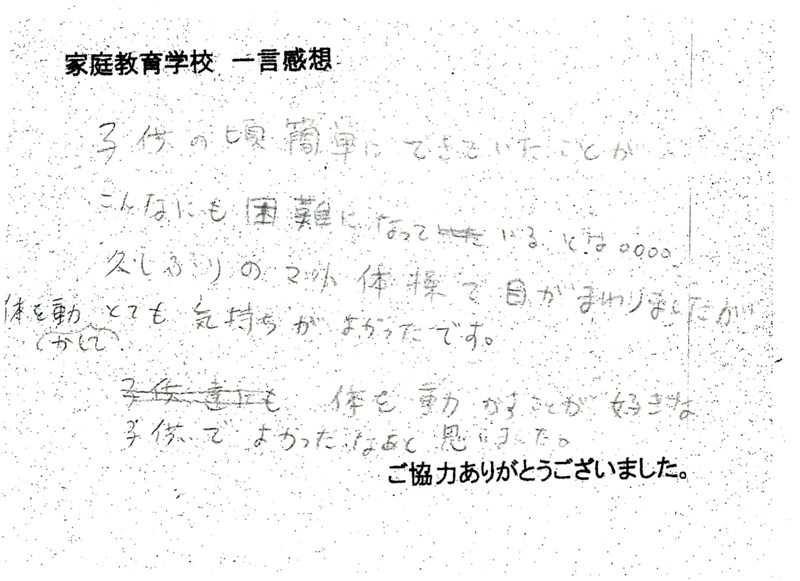 家庭教育学校 一言感想
子供の頃簡単にできていたことが
こんなにも困難になっているとは。。。。
久しぶりのマット体操で目がまわりましたが
体を動かして とても気持ちがよかったです。
子供達にも 体を動かすことが好きな
子供でよかったなぁと思いました。
ご協力ありがとうございました。